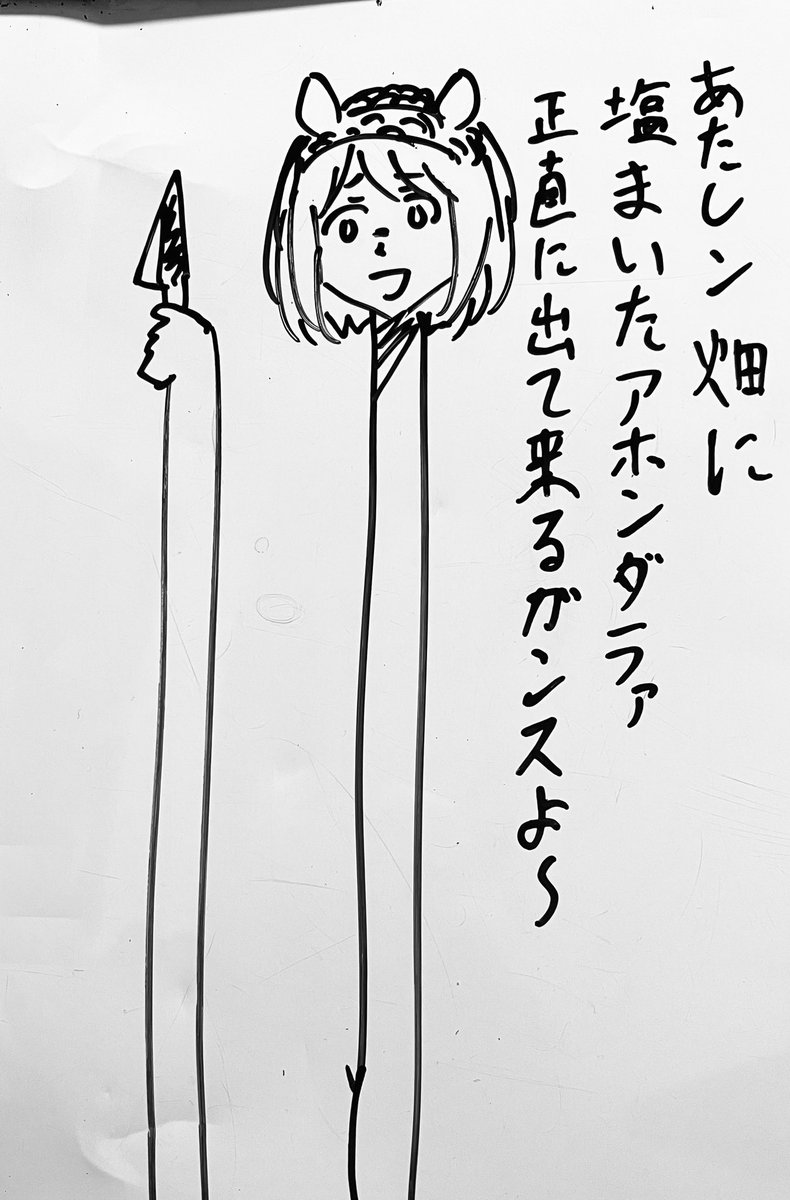 あたしン畑に
塩まいたアホンダラァ
正直に出て来るがンスよ〜